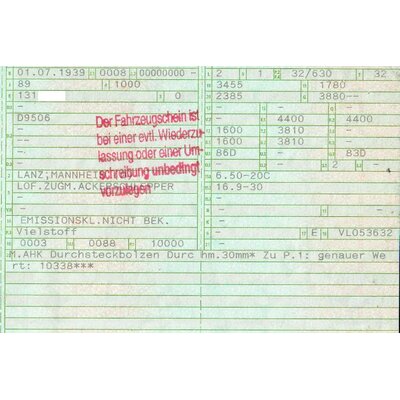 01.07.1939 0008 00000000 - L 2 1 32/630 32
89 1000 3455 1780
131 0 2385 3880--
-
D9506 - 4400 4400
- 1600 3810 -
- 1600 3810 -
- 86D - 83D
- - - 2 -
LANZ,MANNHEIM 6.50-20C
LOF.ZUGM.ACKERSCHLEPPER 16.9-30
- -
EMISSIONSKL.NICHT BEK. -
Vielstoff - E VL053632
0003 0088 10000
M.AHK Durchsteckbolzen Durc hm.30mm* Zu P.1: genauer We
rt: 10338***
Der Fahrzeugschein ist
bei einer evtl. Wiederzu-
lassung oder einer Um-
schreibung unbedingt
vorzulegen